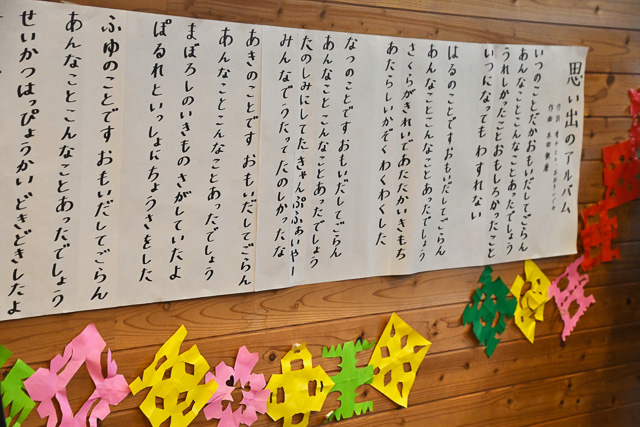 思い出のアルバム
いつのことだかおもいだしてごらん
あんなことこんなことあったでしょう
うれしかったことおもしろかったこと
いつになってもわすれない
はるのことです おもいだしてごらん
あんなことこんなことあったでしょう
さくらがきれいであたたかいきもち
あたらしいかぞくわくわくした
なつのことです おもいだしてごらん
あんなことこんなことあったでしょう
たのしみにしてたきゃんぷふぁいやー
みんなでうたったのしかったな
あきのことです おもいだしてごらん
あんなことこんなことあったでしょう
まぼろしのいきものさがしていたよ
ぱるれといっしょにちょうさをした
ふゆのことです おもいだしてごらん
あんなことこんなことあったでしょう
せいかつはっぴょうかいどきどきしたよ